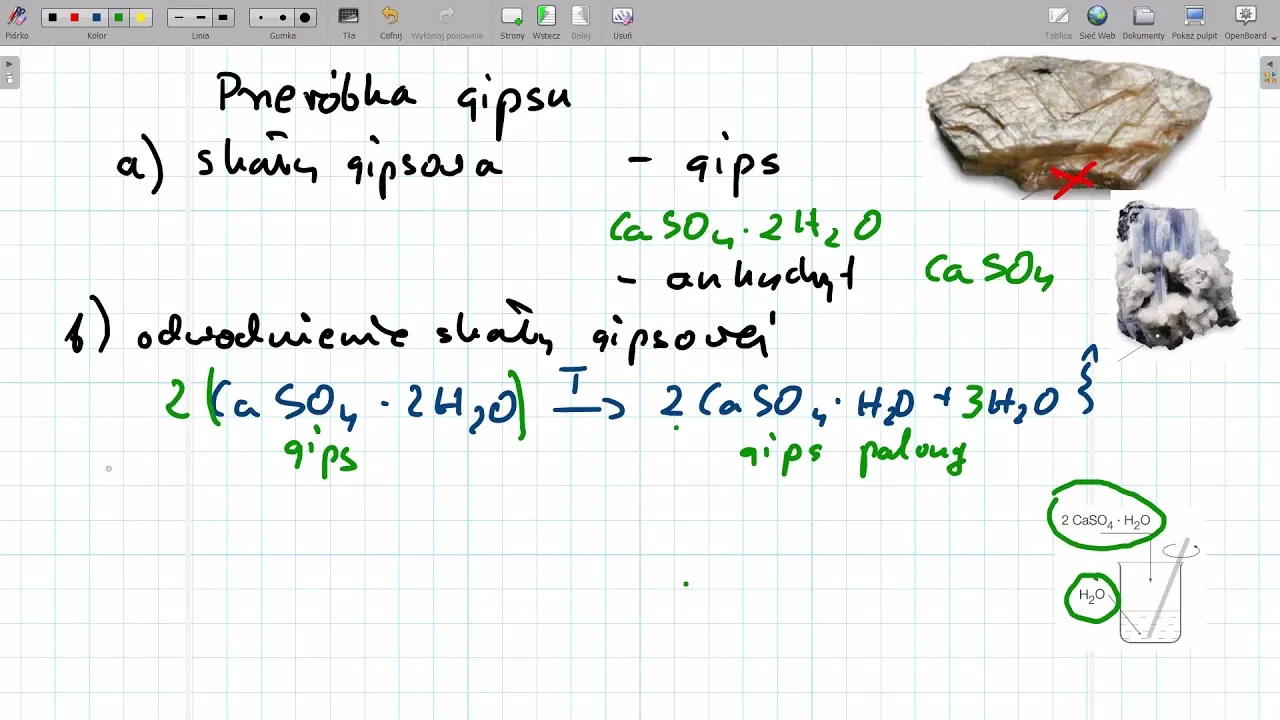 Piórko
Kolor
Linia
Gumka
Tła
Cofnij
Wykonaj ponownie
Strony
Wstecz
Dalej
Usuń
Tablica
Sieć Web
Dokumenty
Pokaż pulpit
OpenBoard
Przeróbka gipsu
a) skały gipsowa - gips
CaSO₄·2H₂O
- anhydryt CaSO₄
b) odwodnienie skały gipsowej
2(CaSO₄·2H₂O) T→ 2CaSO₄·H₂O + 3H₂O
gips gips palony
2 CaSO₄ · H₂O
H₂O